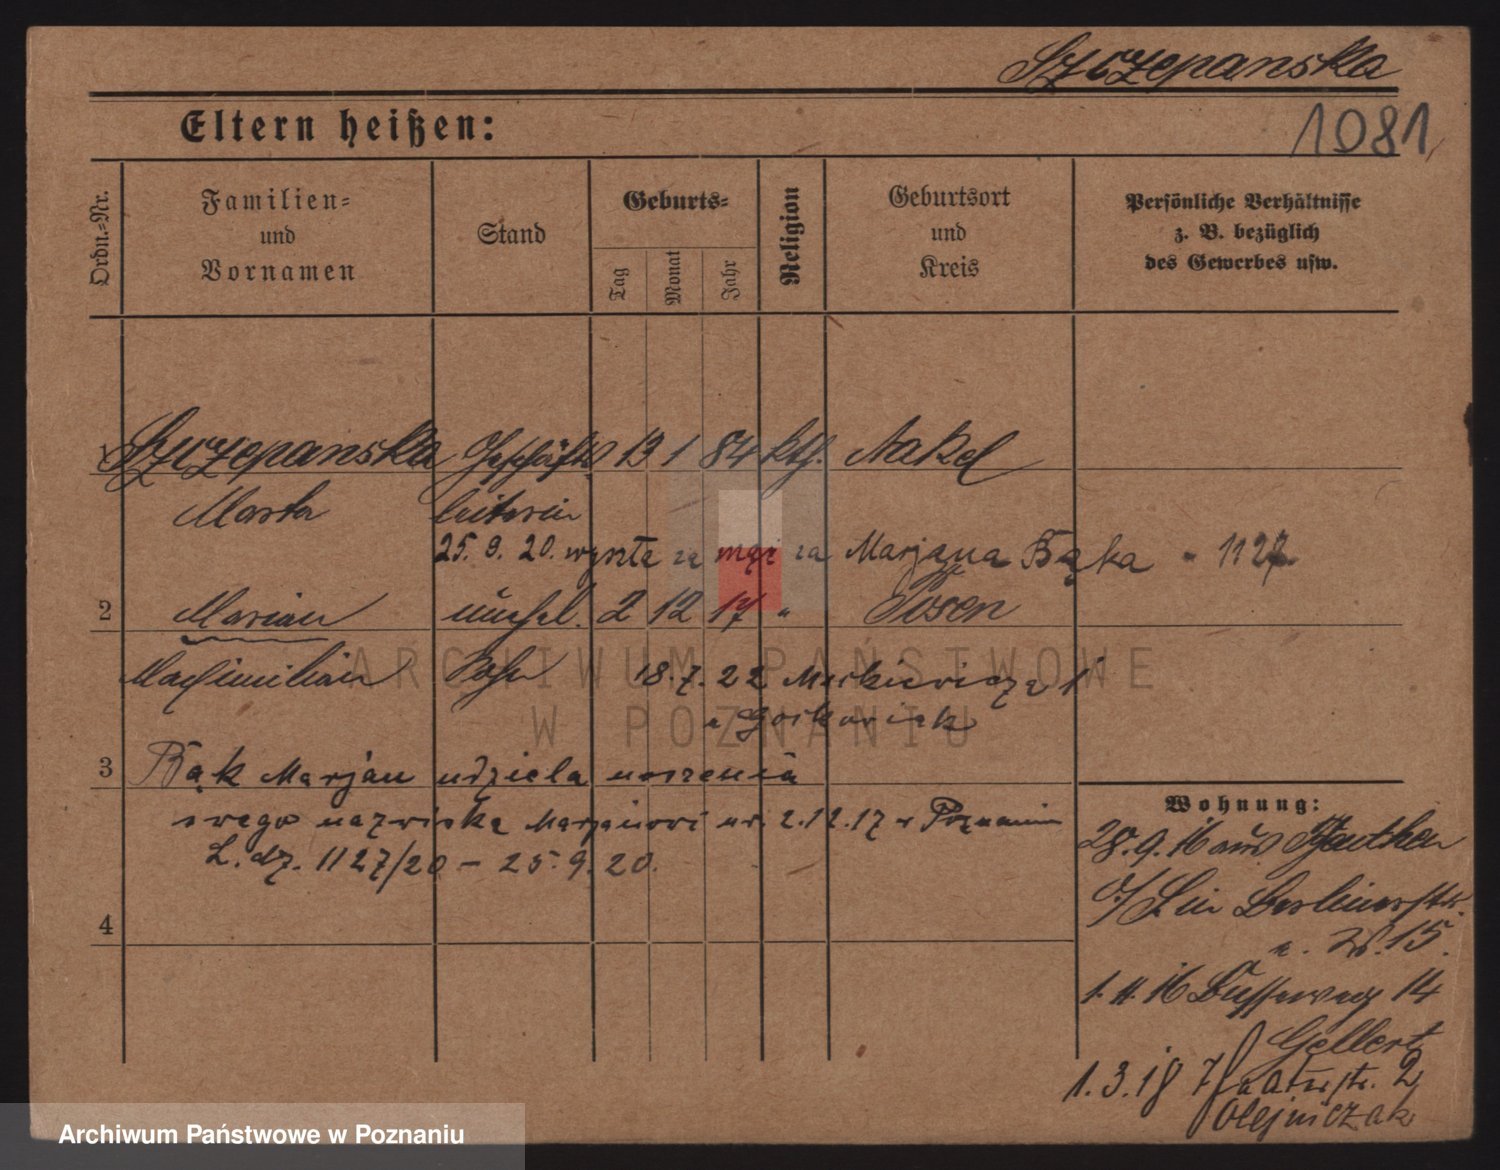 Szczepanska
1081
Eltern heißen:
Ordn.-Nr.
Familien-
und
Vornamen
Stand
Geburts-
Tag
Monat
Jahr
Religion
Geburtsort
und
Kreis
Persönliche Verhältnisse
z. B. bezüglich
des Gewerbes usw.
1 Szczepanska Geschäfts 13 1 84 kth. Nakel
Marta leiterin
25. 9. 20. wyszła za mąż za Marjana Bąka - 1127
2 Marian unehel. 2 12 17 " Posen
Maximilian Sohn 18. 7. 22
3 Bąk Marjan udziela noszenia
swego nazwiska Marjanowi ur. 2.12.17 w Poznaniu
L. dz. 1127/20 - 25. 9. 20.
4
Wohnung:
28. 9. 16 aus Beuthen
Berlinerstr.
15.
1. 11. 16 14
Gellert
1. 3. 18 2
Olejniczak
ARCHIWUM PAŃSTWOWE
W POZNANIU
Archiwum Państwowe w Poznaniu